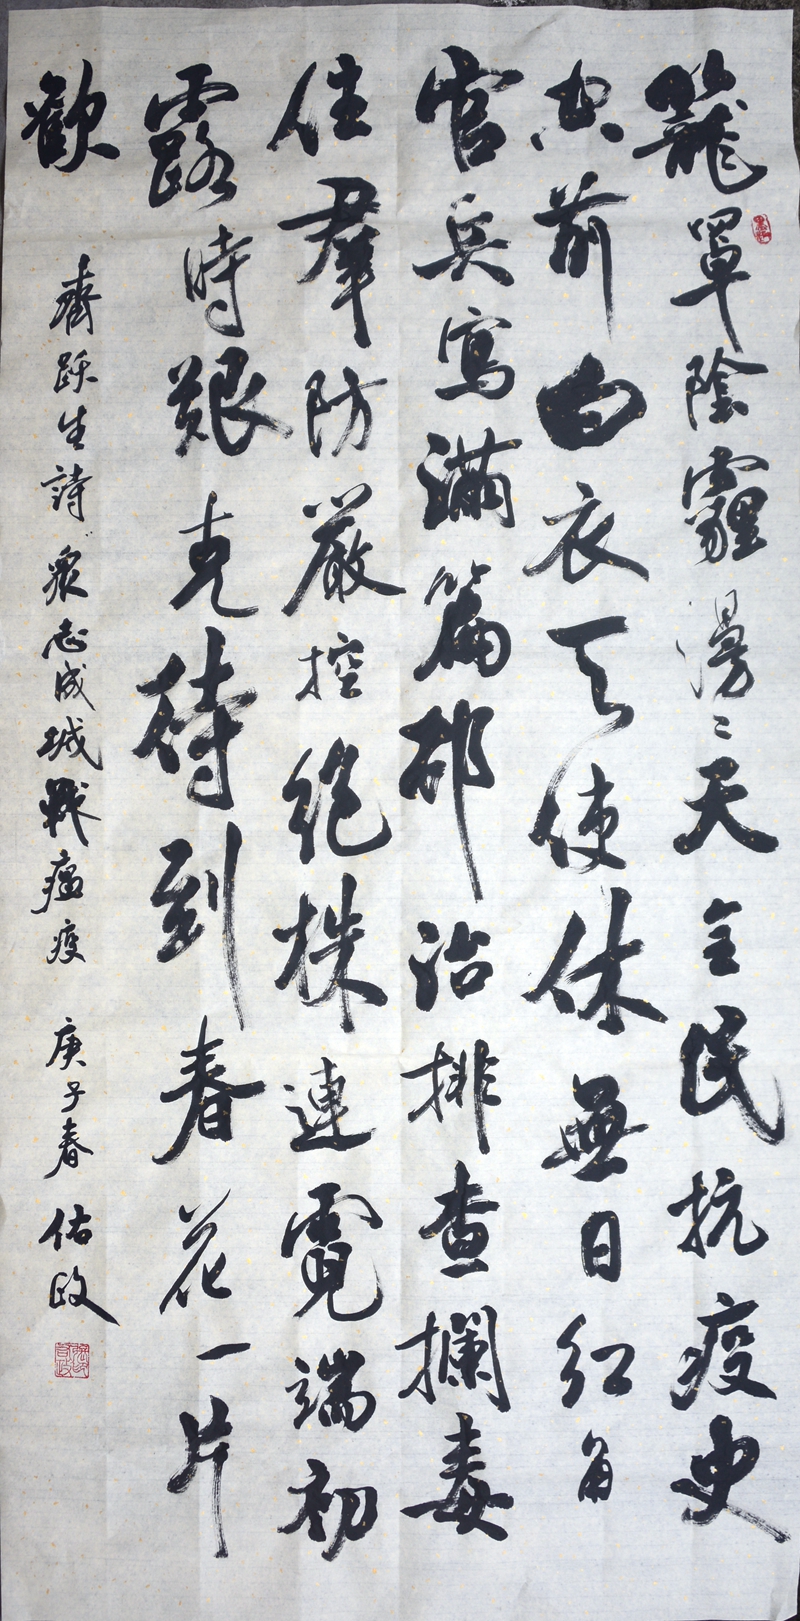 籠罩陰霾漫〻天全民抗疫史
空前白衣天使休無日红
官兵寫滿篇治排查攔毒
住羣防嚴控絕株連霓端初
露時艱克待到春花一片
歡
齊跃生詩 衆志成城戰瘟疫 庚子春 佑政